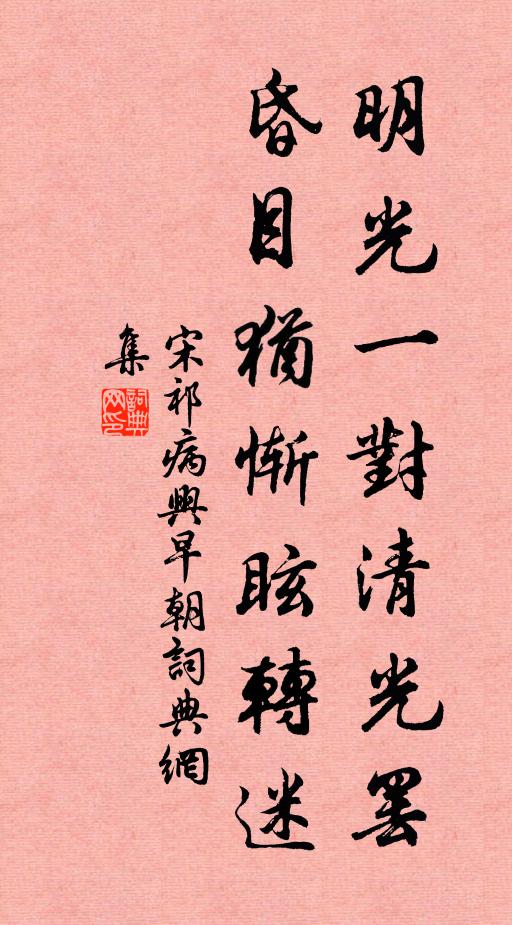 明光一對清光罷
昏目猶慚眩轉迷
宋祁病興早朝詞典網
集
詞典網印